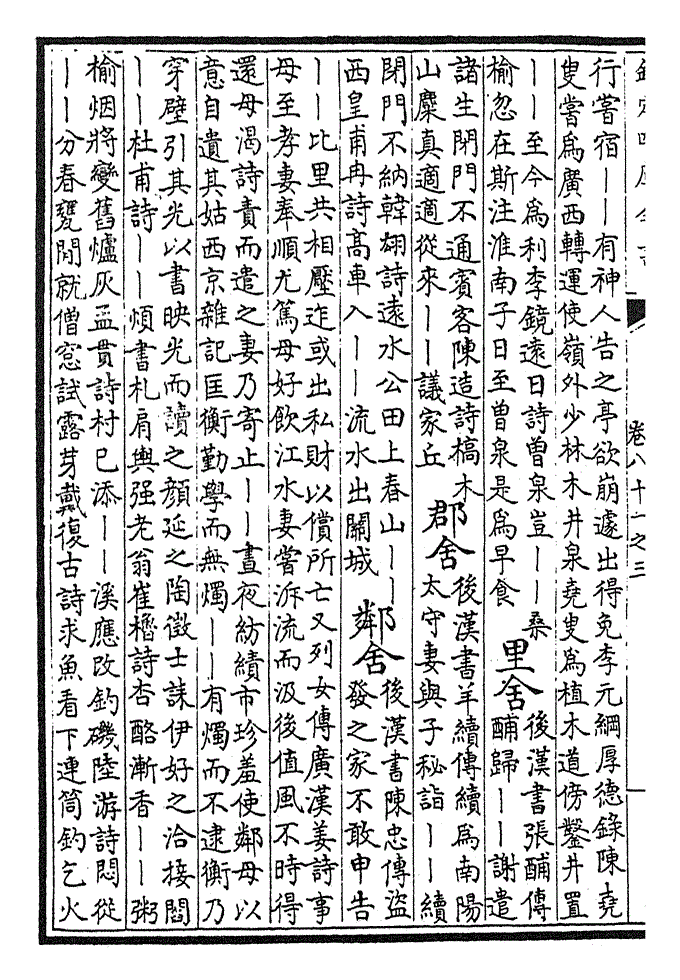 欽定四庫全書
卷八十一之三
行嘗宿——有神人告之亭欲崩遽出得免李元綱厚德錄陳堯
叟嘗爲廣西轉運使嶺外少林木井泉堯叟爲植木道傍鑿井置
——至今爲利李鏡逺日詩曽泉豈——桑
榆忽在斯注淮南子日至曽泉是爲早食
里舍
後漢書張酺傳
酺歸——謝遣
諸生閉門不通賓客陳造詩槁木
山麋真適適從來——議家丘
郡舍
後漢書羊續傳續爲南陽
太守妻與子秘詣——續
閉門不納韓翃詩逺水公田上春山——
西皇甫冉詩髙車入——流水出關城
鄰舍
後漢書陳忠傳盜
發之家不敢申告
——比里共相壓迮或出私財以償所亡又列女傳廣漢姜詩事
母至孝妻奉順尤篤母好飲江水妻嘗泝流而汲後值風不時得
還母渴詩責而遣之妻乃寄止——晝夜紡績市珍羞使鄰母以
意自遺其姑西京雜記匡衡勤學而無燭——有燭而不逮衡乃
穿壁引其光以書映光而讀之顔延之陶徵士誄伊好之洽接閻
——杜甫詩——煩書札肩輿强老翁崔櫓詩杏酪漸香——粥
榆烟將變舊爐灰孟貫詩村已添——溪應改釣磯陸游詩悶從
——分春甕閒就僧窓試露芽戴復古詩求魚看下連筒釣乞火